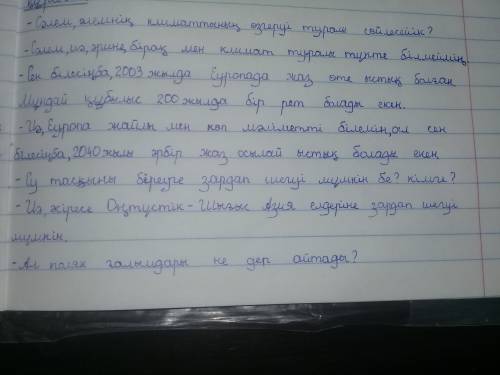 - Сәлем, әлемнің климаттының өзгеруі туралы сөйлесейік?
- Сәлем, иә, әрине бірақ мен климат туралы түкте білмеймін.
- Сен білесіңба, 2003 жылда Еуропада жаз өте ыстық болған
Мұндай құбылыс 200 жылда бір рет болады екен.
- Иә, Еуропа жайлы мен көп мәліметті білемін, ал сен
білесіңба, 2040 жылы әрбір жаз осылай ыстық болады екен
- Су тасқыны біреуге зардап шегуі мүмкін бе? кімге?
- Иә, әсіресе Оңтүстік - Шығыс Азия елдеріне зардап шегуі
мүмкін.
- Ал поляк ғалымдары не деп айтады?